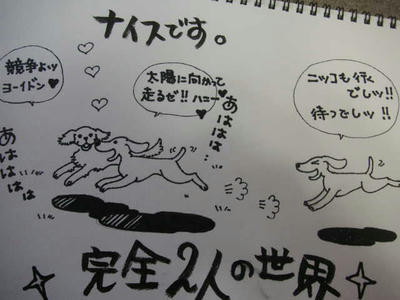 ナイスです。
競争よッ
ヨーイドン♥
太陽に向かって
走るぜ!!ハニー♥
ニッコも行く
でしッ!!
待つでしッ!!
あはははは
あははは…
完全2人の世界